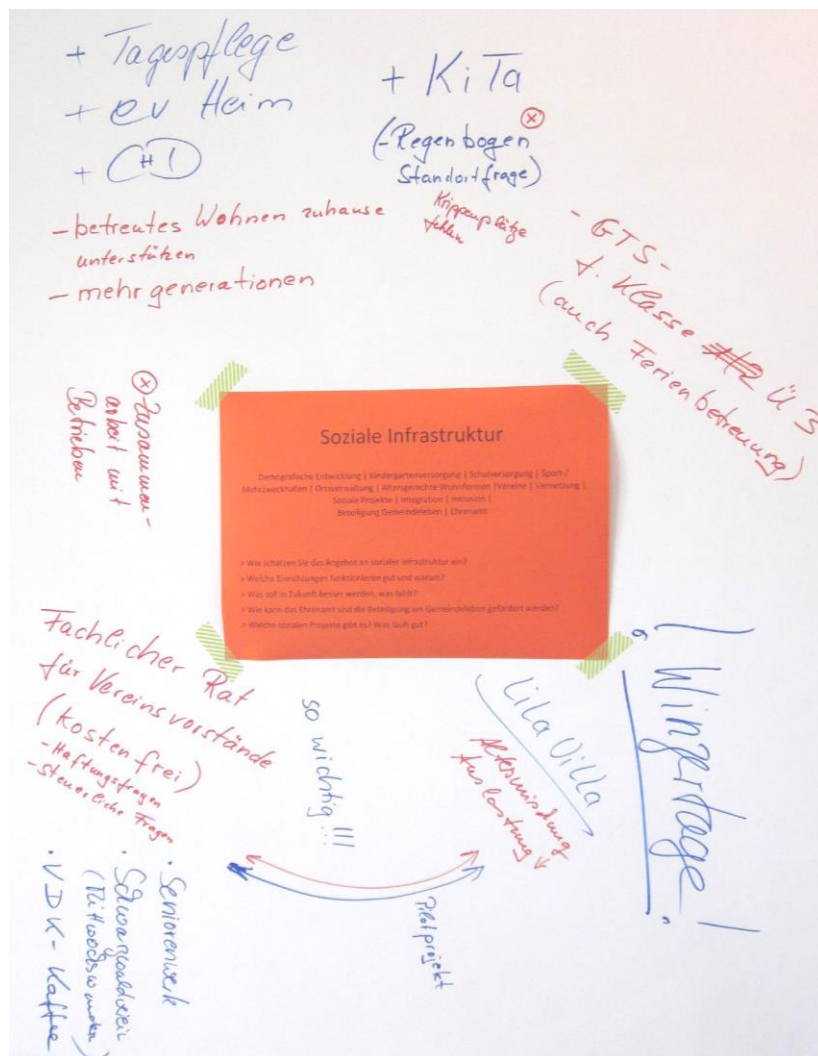 + Tagespflege
+ ev Heim
+ KiTa
(-Regenbogen
Standortfrage)
Krippenplätze
fehlen
- betreutes Wohnen zuhause
unterstützen
- mehrgenerationen
- GTS-
f. Klasse Ü 3
(auch Ferienbetreuung)
Zusammen-
arbeit mit
Betrieben
Soziale Infrastruktur
Demografische Entwicklung | Kindergartenversorgung | Schulversorgung | Sport-/
Mehrzweckhallen | Ortsverwaltung | Altersgerechte Wohnformen | Vereine | Vernetzung |
Soziale Projekte | Integration | Inklusion |
Beteiligung Gemeindeleben | Ehrenamt
> Wie schätzen Sie das Angebot an sozialer Infrastruktur ein?
> Welche Einrichtungen funktionieren gut und warum?
> Was soll in Zukunft besser werden, was fehlt?
> Wie kann das Ehrenamt und die Beteiligung am Gemeindeleben gefördert werden?
> Welche sozialen Projekte gibt es? Was läuft gut?
Fachlicher Rat
für Vereinsvorstände
(kostenfrei)
- Haftungsfragen
- steuerliche Fragen
so wichtig!!!
Lila Villa
Altersmischung
Auslastung ↓
! Wingertage!
Pilotprojekt
· Seniorenwerk
· Schwarzwaldverein
(Mittwochswanderer)
· VDK-Kaffee